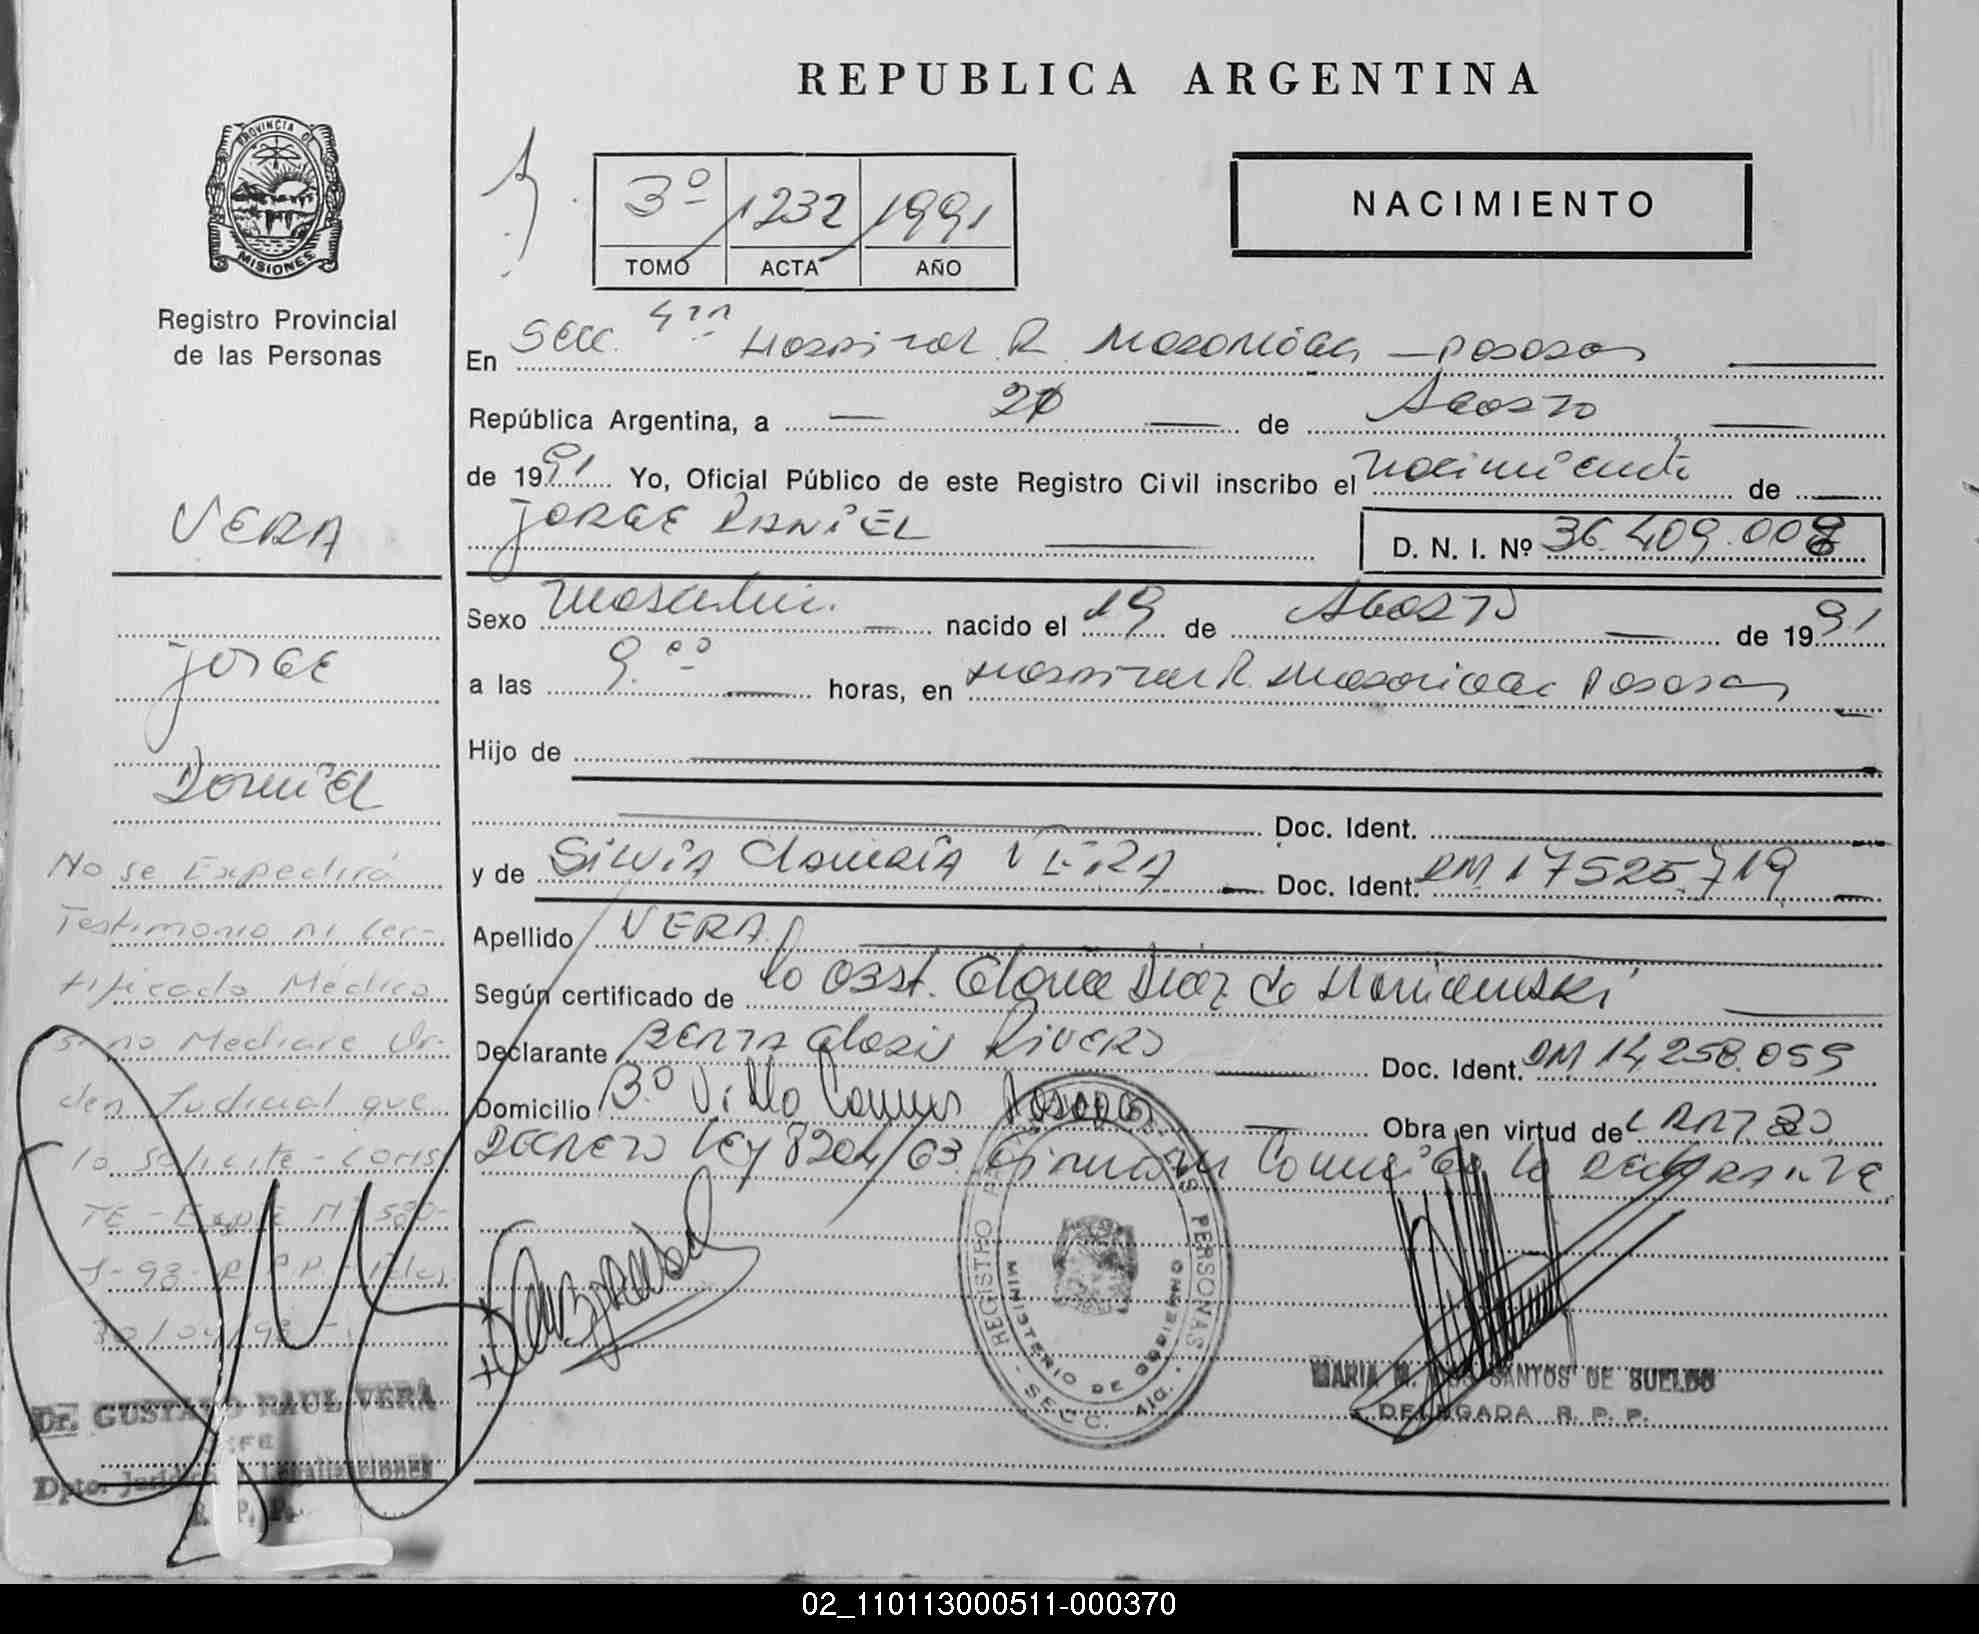 REPUBLICA ARGENTINA
PROVINCIA DE
MISIONES
Registro Provincial
de las Personas
3º 1232 1991
TOMO ACTA AÑO
NACIMIENTO
En Secc. 4ta Hospital R. Madariaga - Posadas
República Argentina, a 20 de Agosto
de 1991 Yo, Oficial Público de este Registro Civil inscribo el nacimiento de
JORGE DANIEL
D. N. I. Nº 36.409.008
Sexo masculino nacido el 19 de Agosto de 1991
a las 9.00 horas, en Hospital R. Madariaga Posadas
Hijo de
Doc. Ident.
y de Silvia Claudia VERA Doc. Ident. DNI 17525.719
Apellido VERA
Según certificado de la Obst. Gloria Diaz de
Declarante Berta Gladis Rivero Doc. Ident. DNI 14,258.059
Domicilio Bº Villa Posadas Obra en virtud de
DECRETO Ley 8204/63 la DECLARANTE
VERA
Jorge
Daniel
No se Expedirá
Testimonio ni Cer-
tificado Médico
si no Mediare Or-
den Judicial que
lo solicite - Cons
TE - Expte Nº 530-
J-98- R.P.P.
30/04/98 -
Dr. GUSTAVO RAUL VERA
JEFE
Dpto. Jurídico y Legalizaciones
R. P. P.
REGISTRO PERSONAS
MINISTERIO DE GOBIERNO
SECC. 4ta.
MARIA M. DOS SANTOS DE SUELDO
DELEGADA R. P. P.
02_110113000511-000370